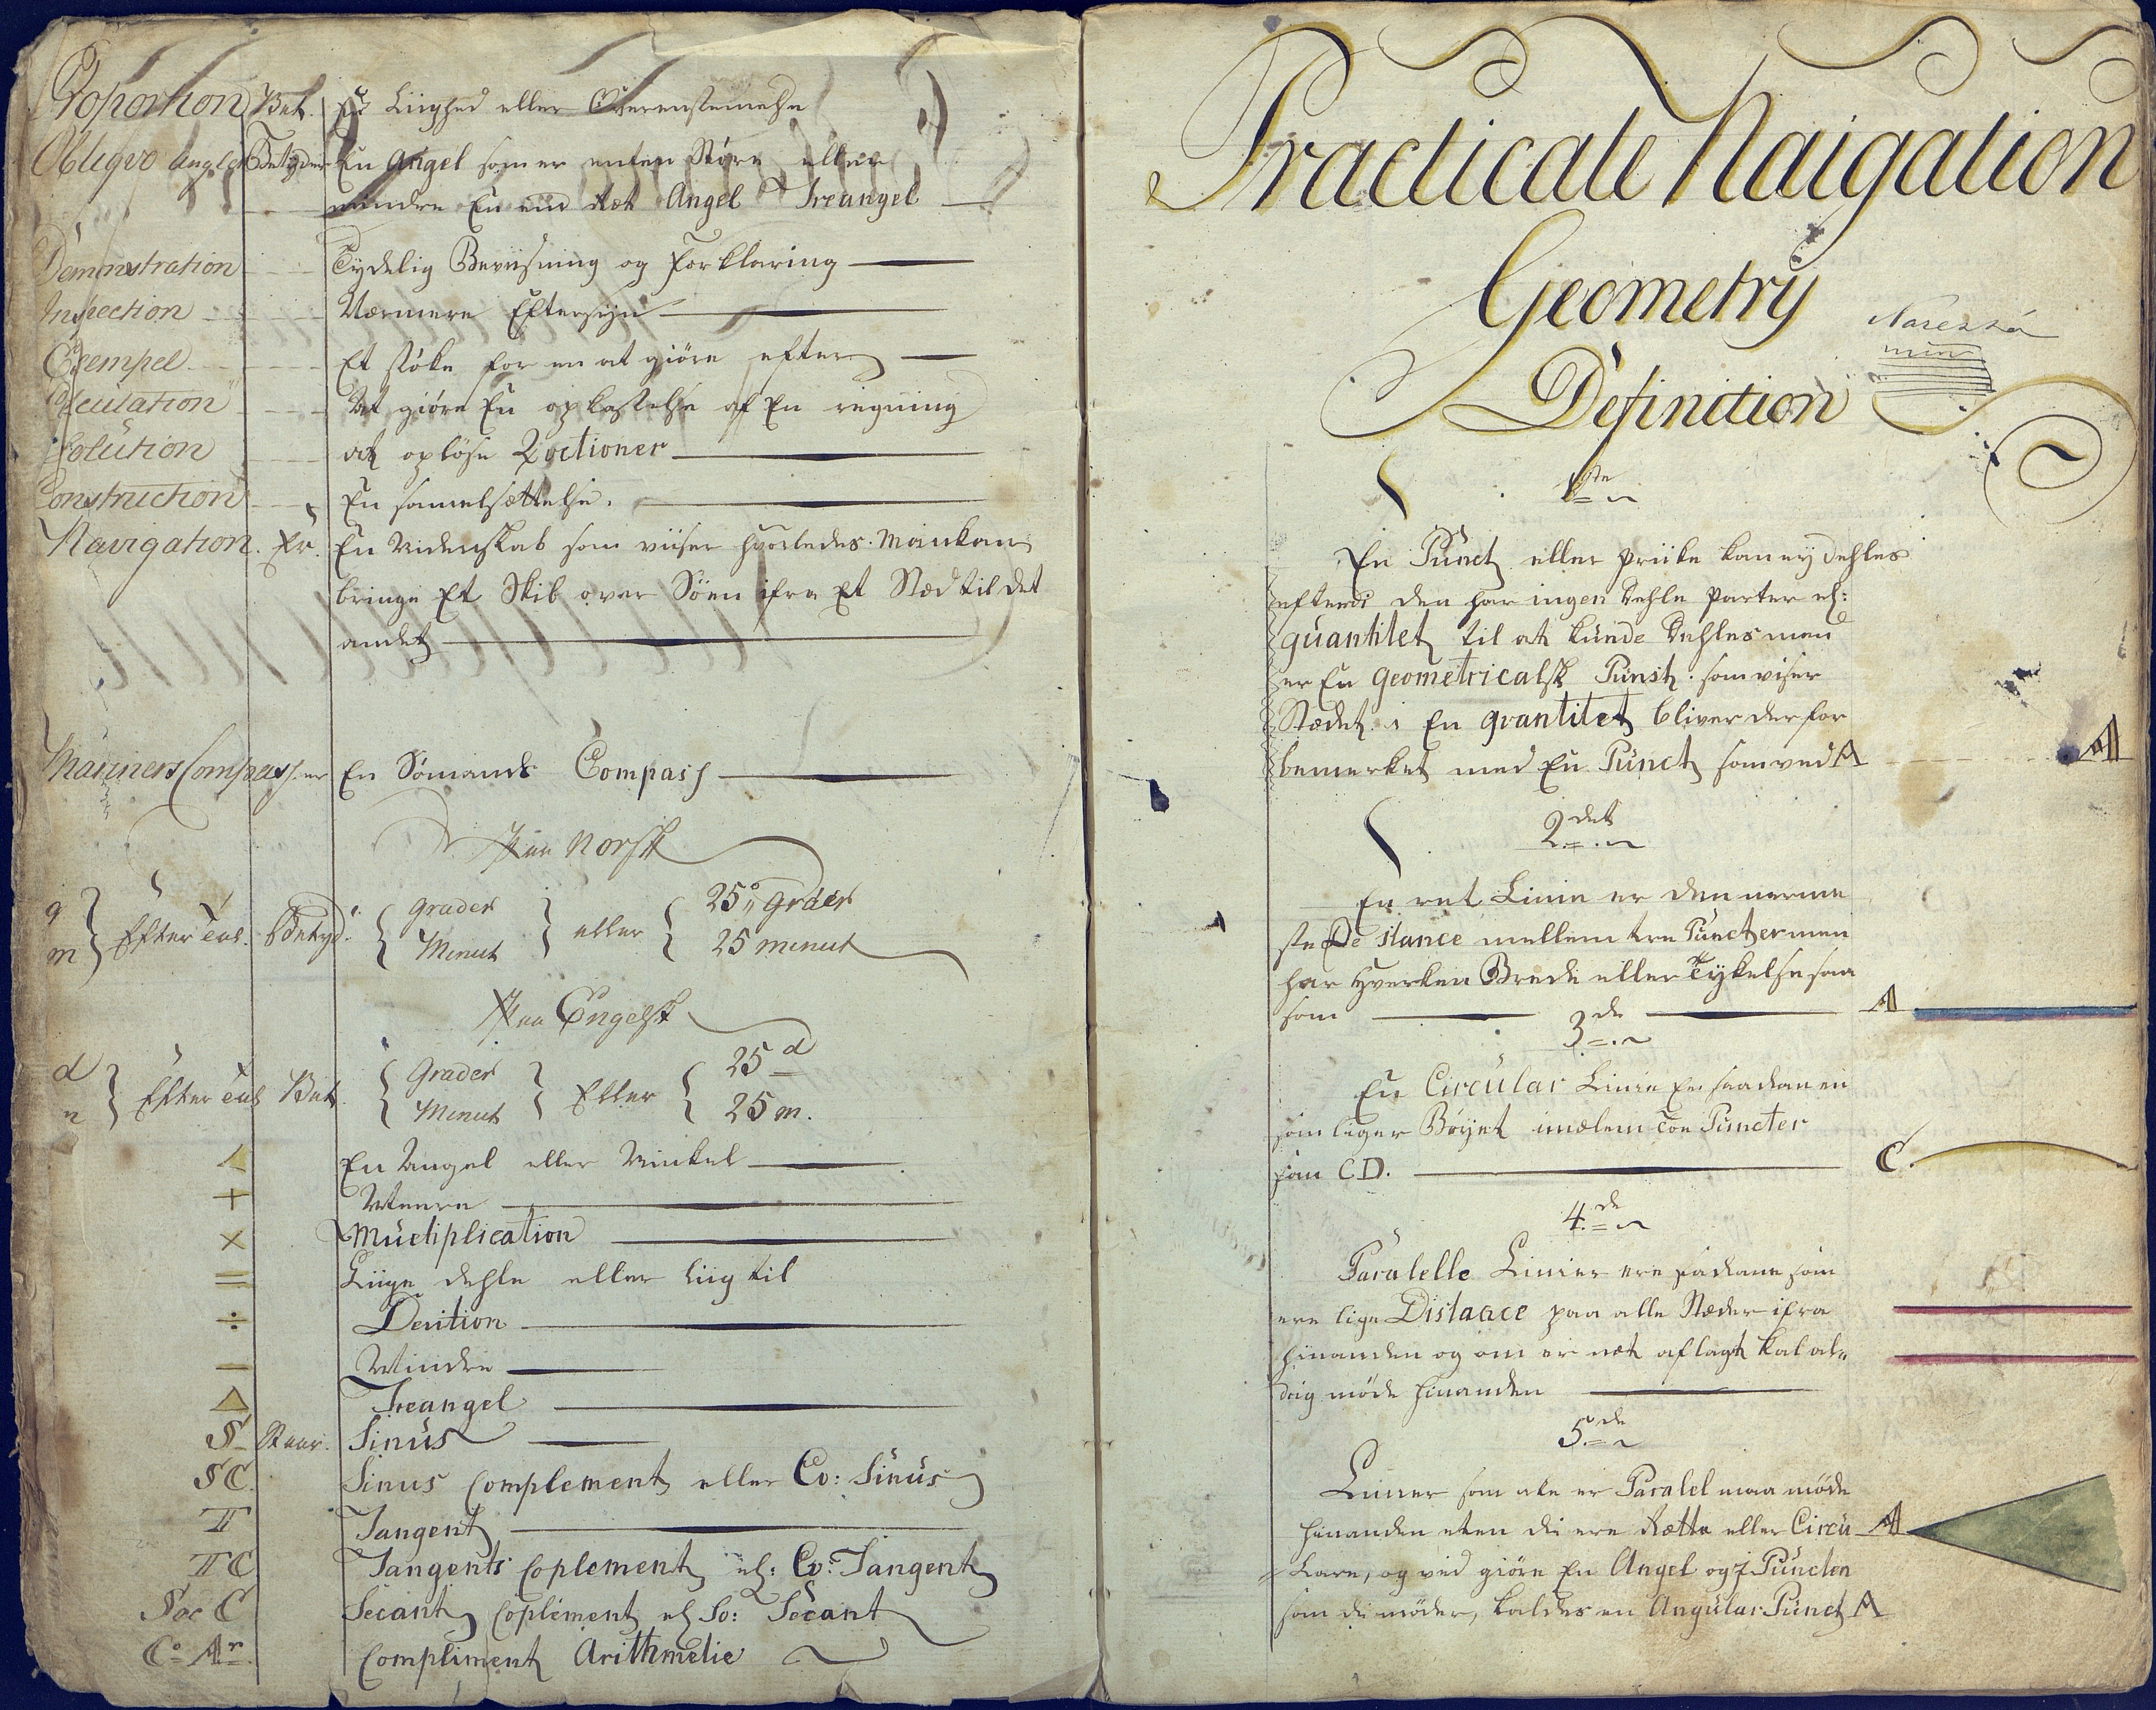 Proportion Bet. En Liighed eller Overenstemelse
Obliqvo Angler Betyder En Angel som er enten Störe eller
mindre En end Ret Angel Treangel
Demonstration Tydelig Beviisning og Forklaring
Inspection Nærmere Eftersyn
Exempel Et støke for en at giöre efter
Calculation At giöre En opkastelse af En regning
Solution ock oplöse Qoctioner
Construction En samelsættelse.
Navigation. Er. En Videnskab som viiser hvorledes Mankan
bringe Et Skib over Söen ifra Et Stæd til det
andet
Mariners Compass er En Sömands Compass
Paa Norsk
g
m } Efter Tal. Betyd: { Grader
Minut } eller { 25° grader
25 minut
Paa Engelsk
d
m } Efter Tal Bet. { Grader
Minut } Eller { 25 d
25 m.
∠ En Angel eller Vinkel
+ Meere
× Multiplication
= Liige dehle eller liig til
÷ Devition
− Mindre
△ Treangel
S Staar. Sinus
SC. Sinus Complement eller Co: Sinus
T Tangent
TC Tangents Coplement el: Co: Tangent
Sec C Secant Coplement el So: Secant
Co Ar. Compliment Arithmetic
Practicale Naigation
Geometry
Definition
1ste
En Punct eller prike kan ey dehles
efterdi den har ingen dehle parter el:
quantitet til at kunde dehles men
er En geometricalsk Punst: som viser
Stædet i En qvantitet bliver derfor
bemerket med En Punct som ved A
A
2det
En ret Linie er den nerme
ste De stance mellem tre Puncter men
har hverken Brede eller Tykelse saa
som
A
3de
En Circular Linie En saadan en
som liger Böyet imelem toe Puncter
som CD.
C.
4de
Paralelle Linier ere sadane som
ere lige Distance paa alle Stæder ifra
hinanden og om er ret aflagt kal al„
drig möde hinanden
5de
Linier som ike er Paralel maa möde
hinanden eten di ere Rette eller Circu
Lare, og ved giöre En Angel og j Puncten
som di möder, kaldes en Angular Punct A
A